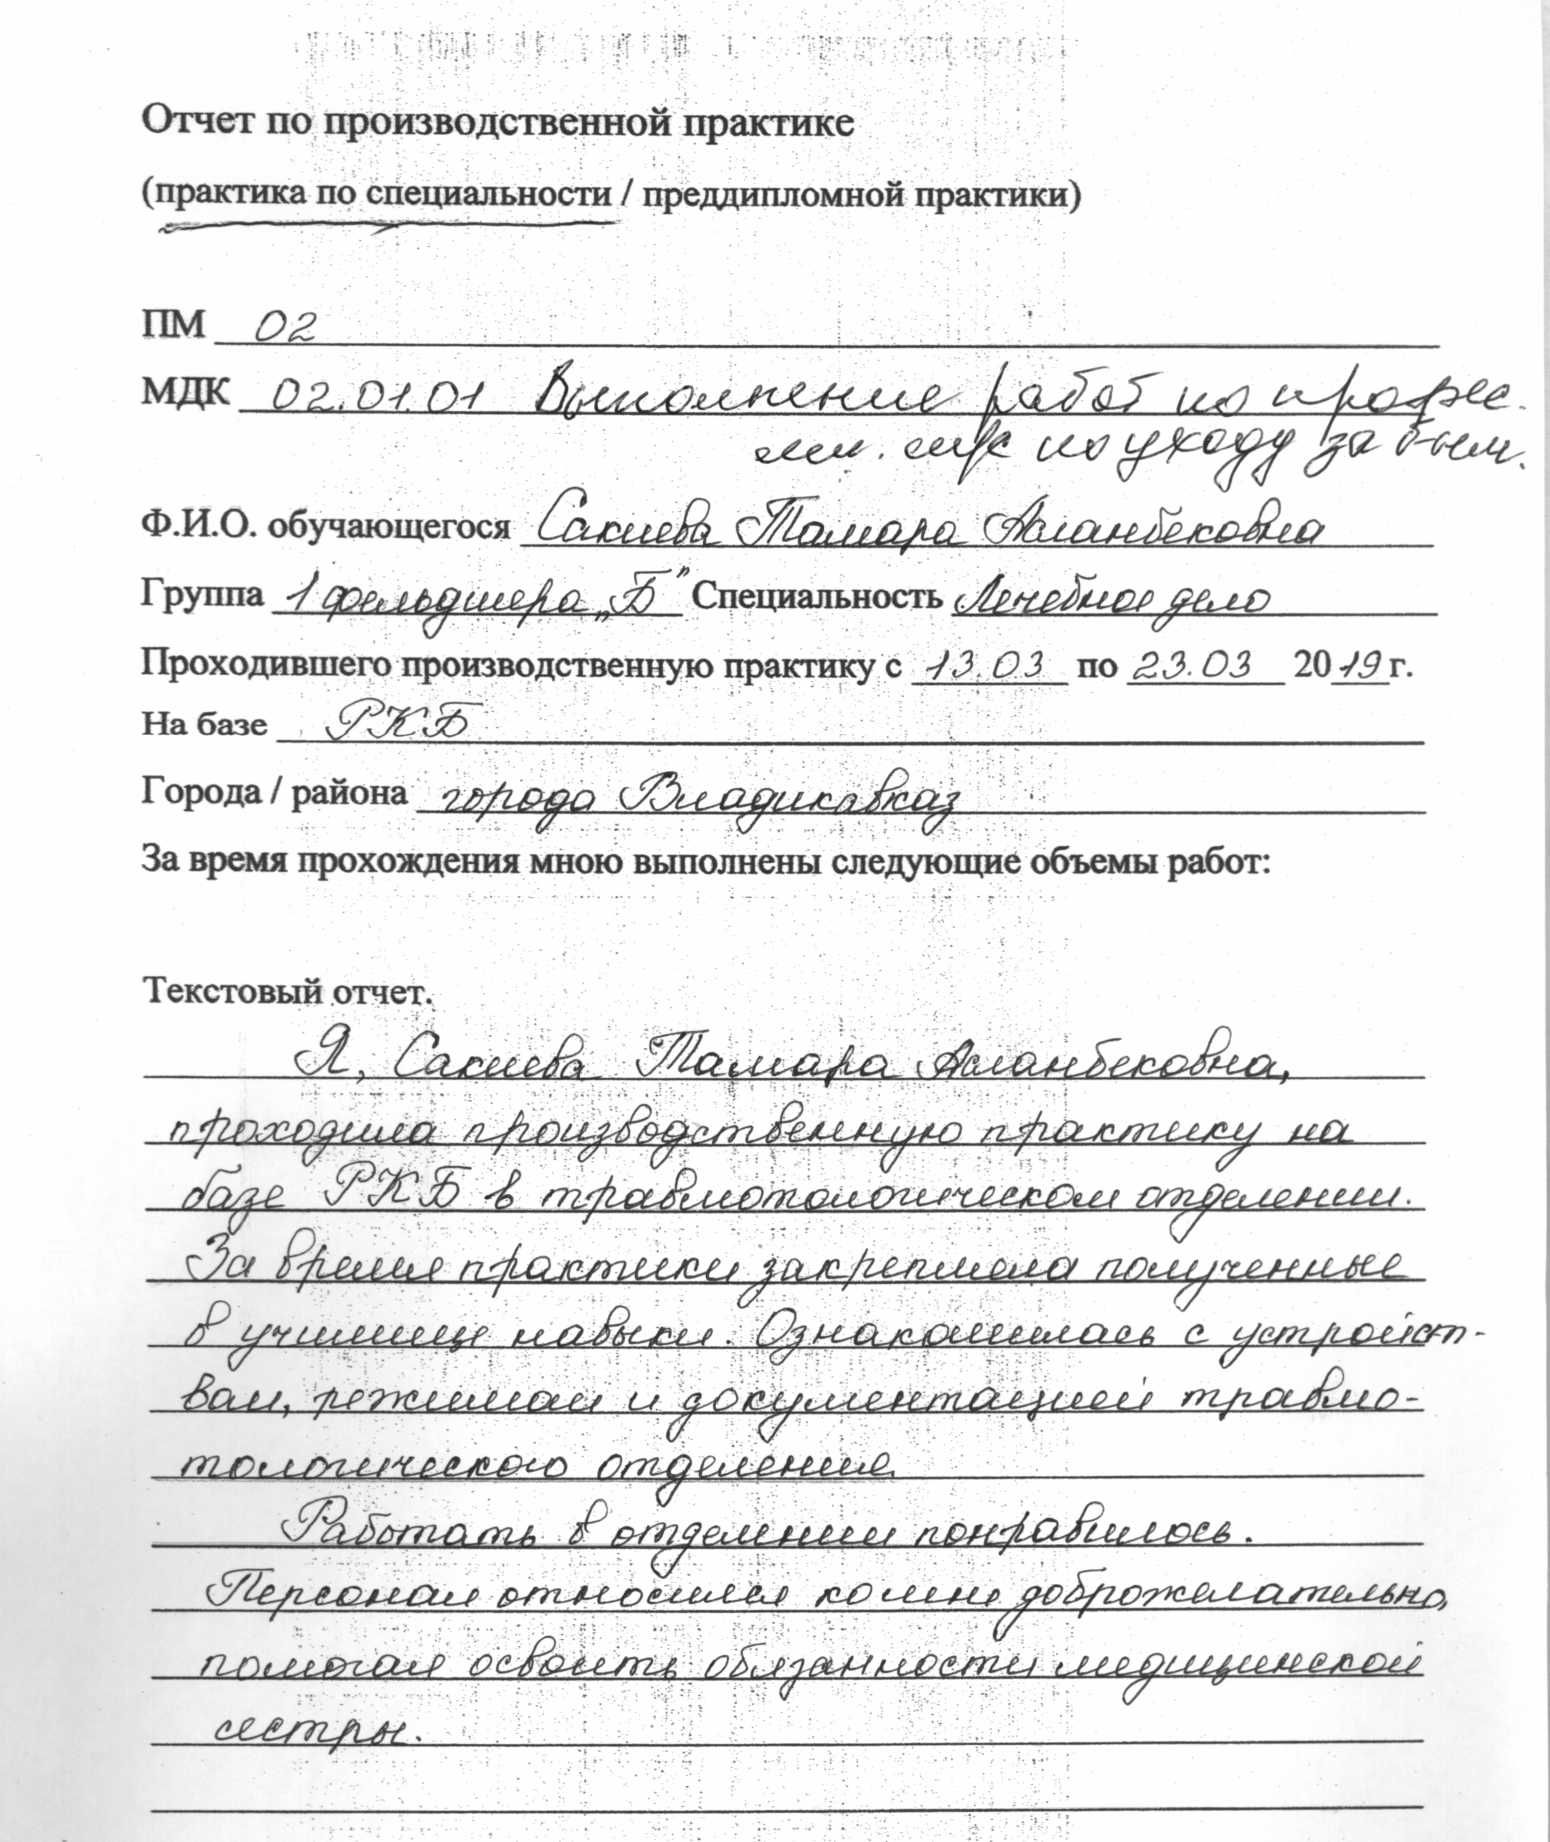 Отчет по производственной практике
(практика по специальности / преддипломной практики)
ПМ 02
МДК 02.01.01 Выполнение работ по профес.
мл. м/с по уходу за бол.
Ф.И.О. обучающегося Сакиева Тамара Асланбековна
Группа 1 фельдшера „Б" Специальность Лечебное дело
Проходившего производственную практику с 13.03 по 23.03 2019 г.
На базе РКБ
Города / района города Владикавказ
За время прохождения мною выполнены следующие объемы работ:
Текстовый отчет.
Я, Сакиева Тамара Асланбековна,
проходила производственную практику на
базе РКБ в травмотологическом отделении.
За время практики закрепляла полученные
в училище навыки. Ознакомилась с устройст-
вом, режимом и документацией травмо-
тологического отделения.
Работать в отделении понравилось.
Персонал относился ко мне доброжелательно,
помогая освоить обязанности медицинской
сестры.